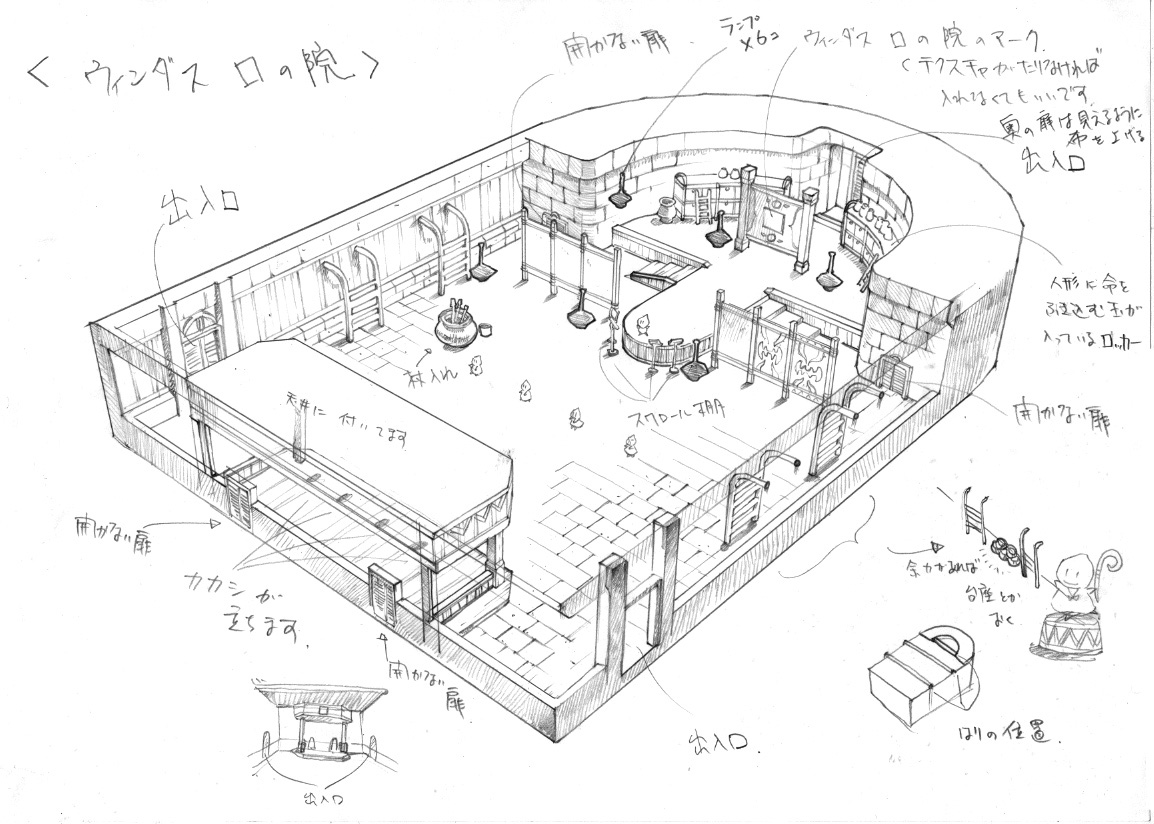 < ウィンダス 口の院 >
開かない扉
ランプ
×6コ
ウィンダス 口の院のマーク.
(テクスチャがたりなければ
入れなくてもいいです.
奥の扉は見えるように
布を上げる
出入口
出入口
人形に命を
ふき込む玉が
入っているロッカー
杖入れ
スクロール
天井に付いてます
開かない扉
開かない扉
カカシが
立ちます.
開かない
扉.
余力があれば
台座とか
おく
はりの位置.
出入口.
出入口